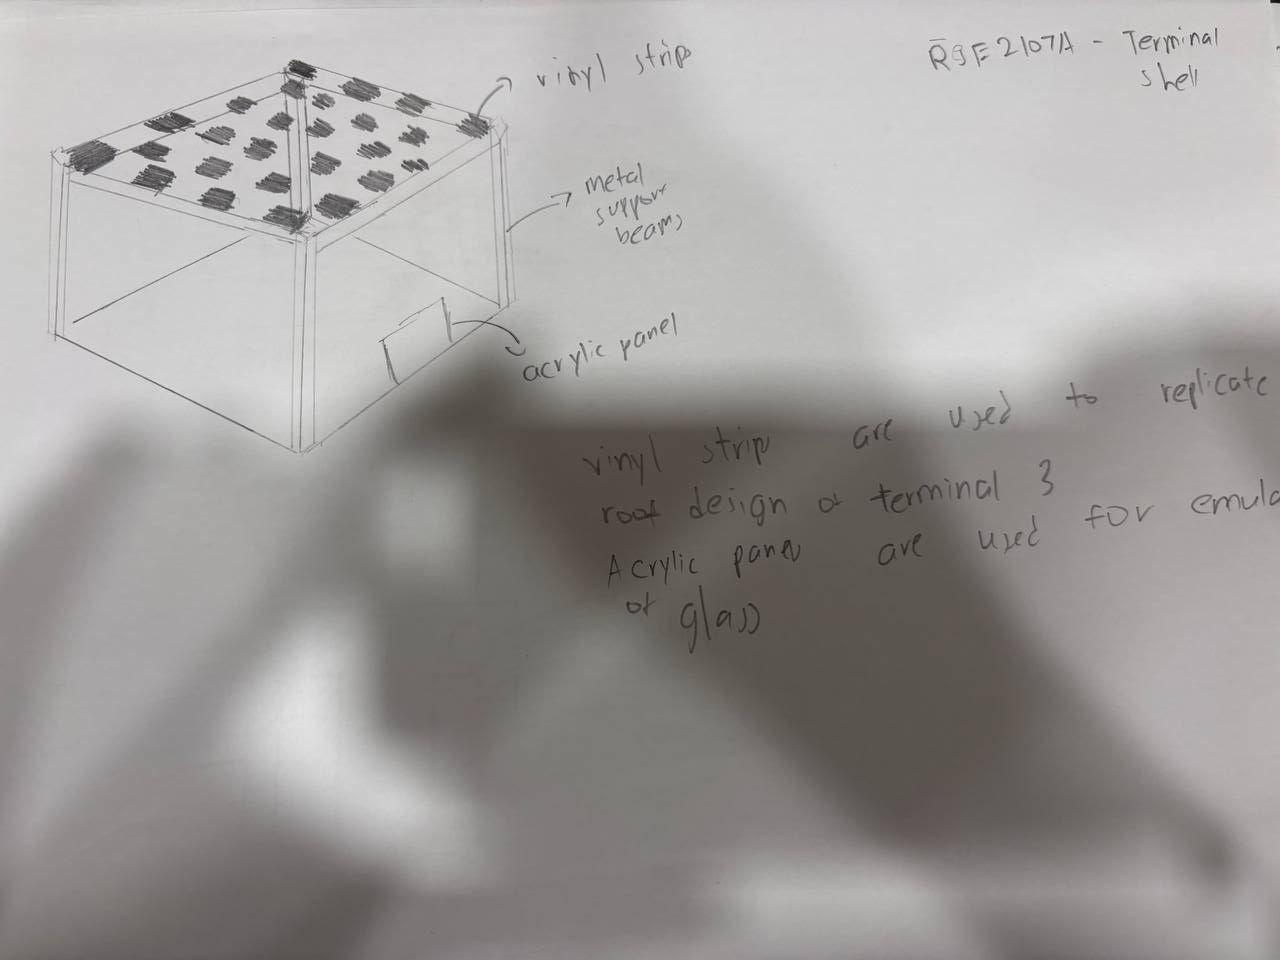 RSE2107A - Terminal
shell
vinyl strip
metal
support
beams
acrylic panel
vinyl strip are used to replicate
roof design of terminal 3
Acrylic panel are used for emula
of glass